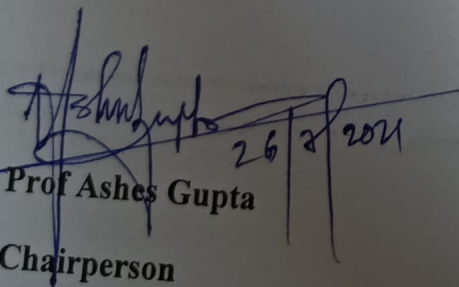 Gupta 26/7/2021
Prof Ashes Gupta
Chairperson